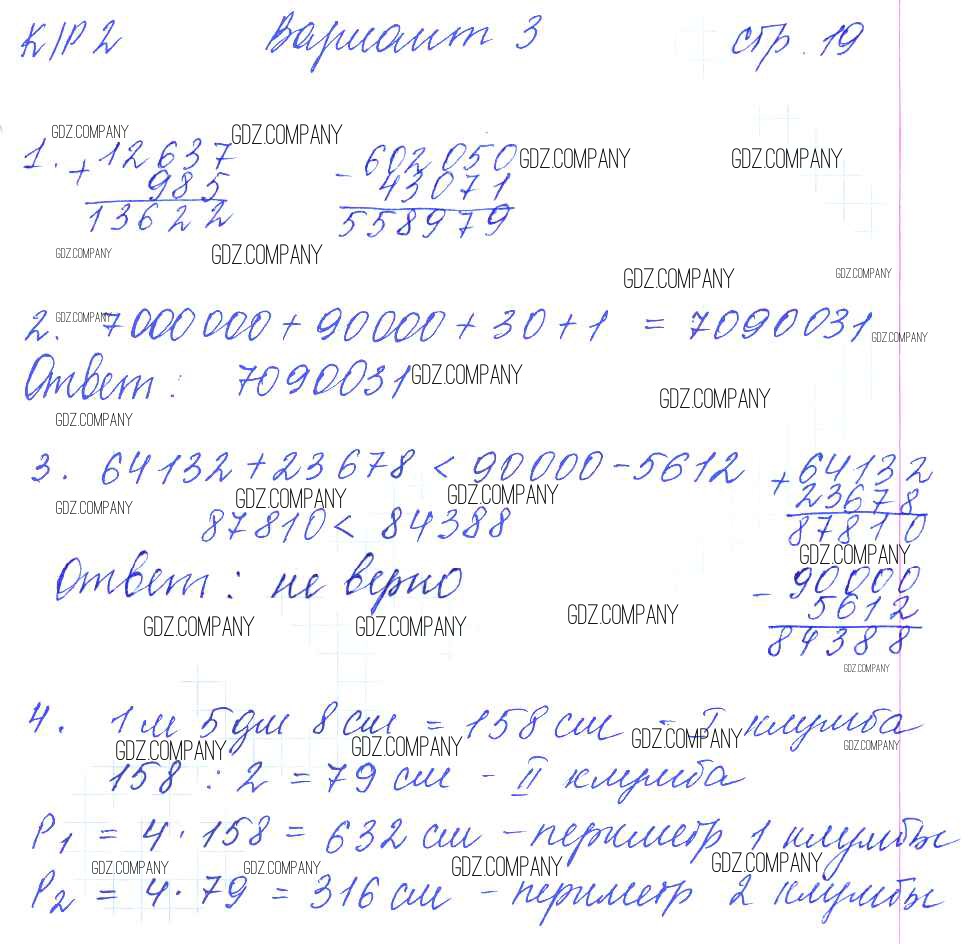 К/Р 2 Вариант 3 стр. 19
GDZ.COMPANY GDZ.COMPANY
1. + 12637 - 602 050 GDZ.COMPANY GDZ.COMPANY
985 43071
13622 558979
GDZ.COMPANY GDZ.COMPANY
GDZ.COMPANY GDZ.COMPANY
GDZ.COMPANY
2. 7000000 + 90000 + 30 + 1 = 7090031 GDZ.COMPANY
Ответ: 7090031 GDZ.COMPANY
GDZ.COMPANY
GDZ.COMPANY
3. 64132 + 23678 < 90000 - 5612 + 64132
GDZ.COMPANY GDZ.COMPANY GDZ.COMPANY 23678
87810 < 84388 87810
GDZ.COMPANY
Ответ: не верно - 90000
5612
GDZ.COMPANY GDZ.COMPANY GDZ.COMPANY
84388
GDZ.COMPANY
4. 1 м 5 дм 8 см = 158 см - I клумба
GDZ.COMPANY GDZ.COMPANY GDZ.COMPANY GDZ.COMPANY
158 : 2 = 79 см - II клумба
P1 = 4 · 158 = 632 см - периметр 1 клумбы
GDZ.COMPANY GDZ.COMPANY GDZ.COMPANY GDZ.COMPANY
P2 = 4 · 79 = 316 см - периметр 2 клумбы